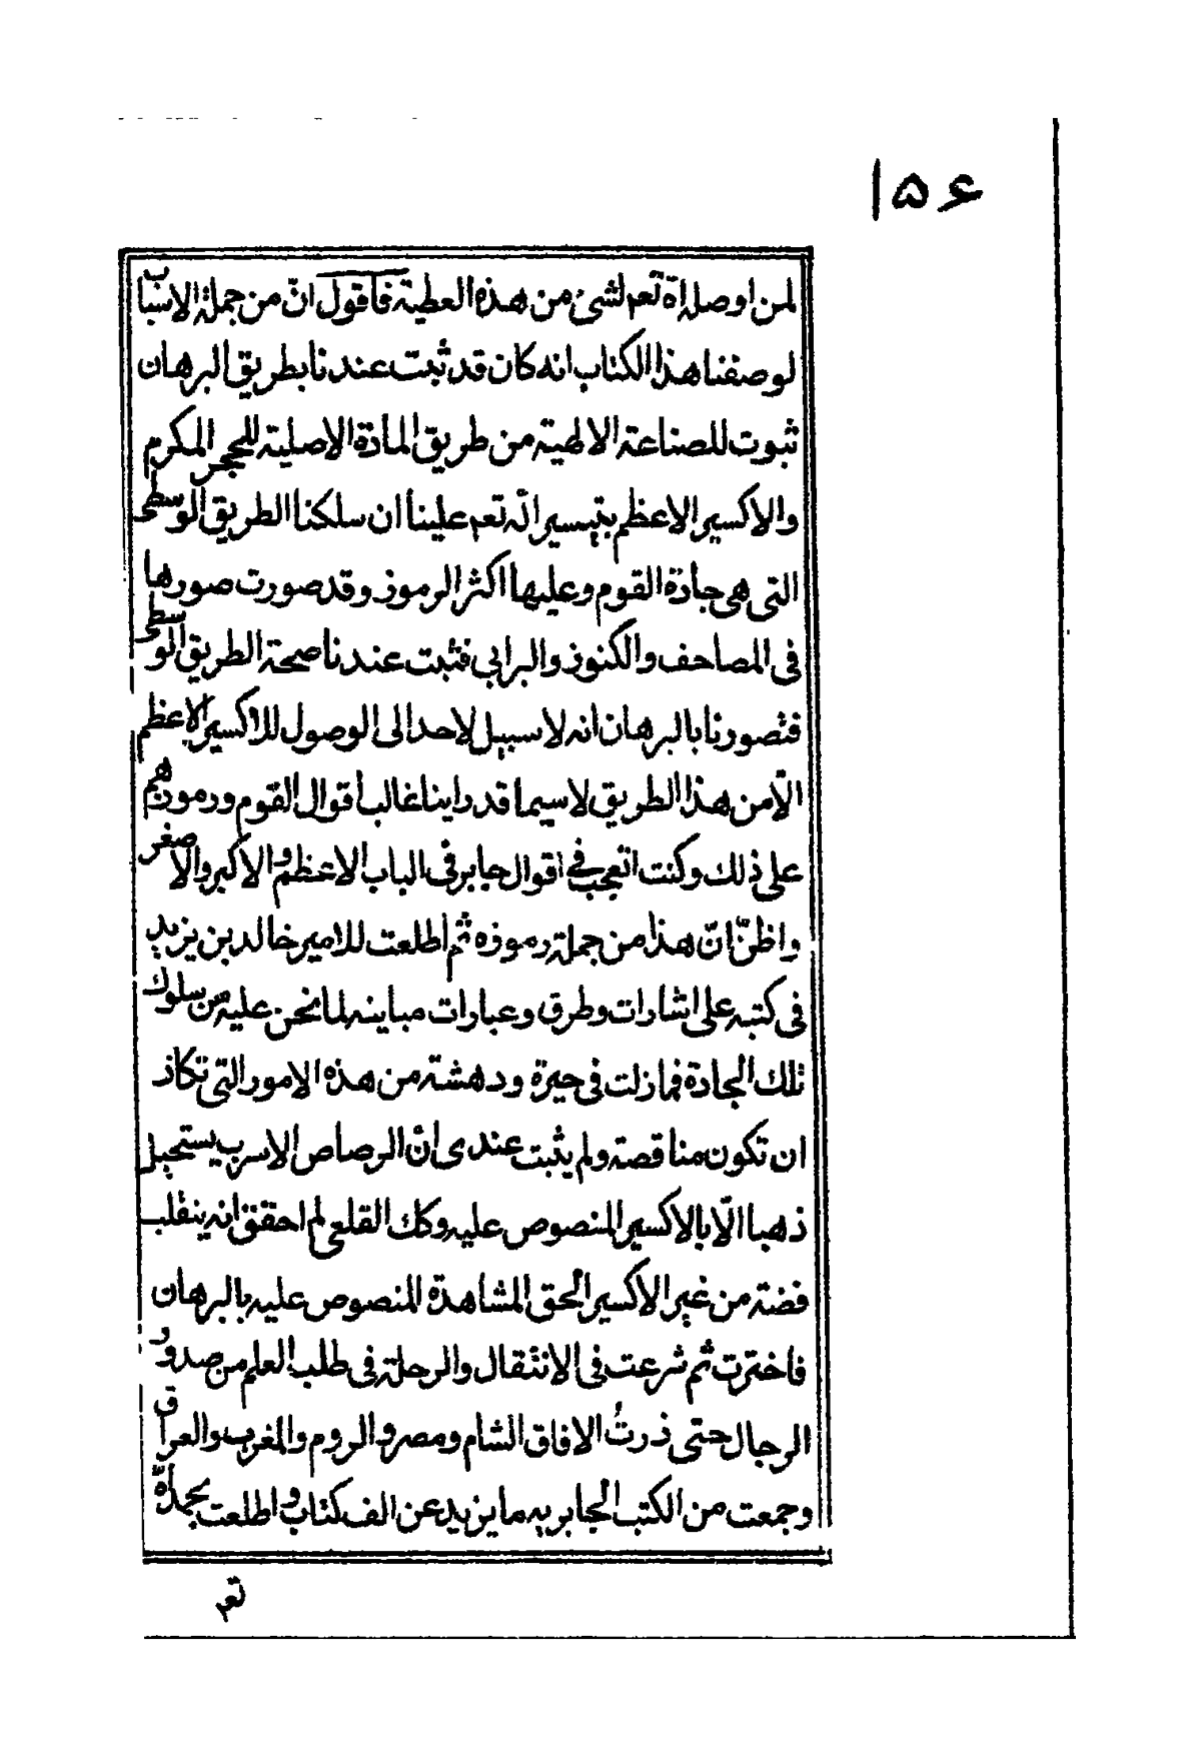 ۱۵۶
لمن اوصله الله تعم لشئ من هذه العطية فأقول انّ من جملة الاسباب
لوصفنا هذا الكتاب انه كان قد ثبت عندنا بطريق البرهان
ثبوت للصناعة الالهية من طريق المادة الاصلية للحجر المكرم
والاكسير الاعظم بتيسير الله تعم علينا ان سلكنا الطريق الوسطى
التى هى جادة القوم وعليها اكثر الرموز وقد صورت صورها
فى المصاحف والكنوز والبرابى فثبت عندنا صحة الطريق الوسطى
فتصورنا بالبرهان انه لا سبيل لاحد الى الوصول للاكسير الاعظم
الّا من هذا الطريق لاسيما قد راينا غالب أقوال القوم ورموزهم
على ذلك وكنت اتعجب فى اقوال جابر فى الباب الاعظم و الاكبر والاصغر
واظنّ انّ هذا من جملة رموزه ثم اطلعت للامير خالد بن يزيد
فى كتبه على اشارات وطرق وعبارات مباينه لما نحن عليه من سلوك
تلك الجادة فمازلت فى حيرة ودهشة من هذه الامور التى تكاد
ان تكون مناقصة ولم يثبت عندى انّ الرصاص الاسرب يستحيل
ذهبا الّا بالاكسير المنصوص عليه وكك القلعى لم احقق انه ينقلب
فضة من غير الاكسير الحق المشاهدة المنصوص عليه بالبرهان
فاخترت ثم شرعت فى الانتقال والرحلة فى طلب العلم من صدور
الرجال حتى ذرتُ الافاق الشام ومصر والروم والمغرب والعراق
وجمعت من الكتب الجابريه ما يزيد عن الف كتاب و اطلعت بحمد الله
تعم